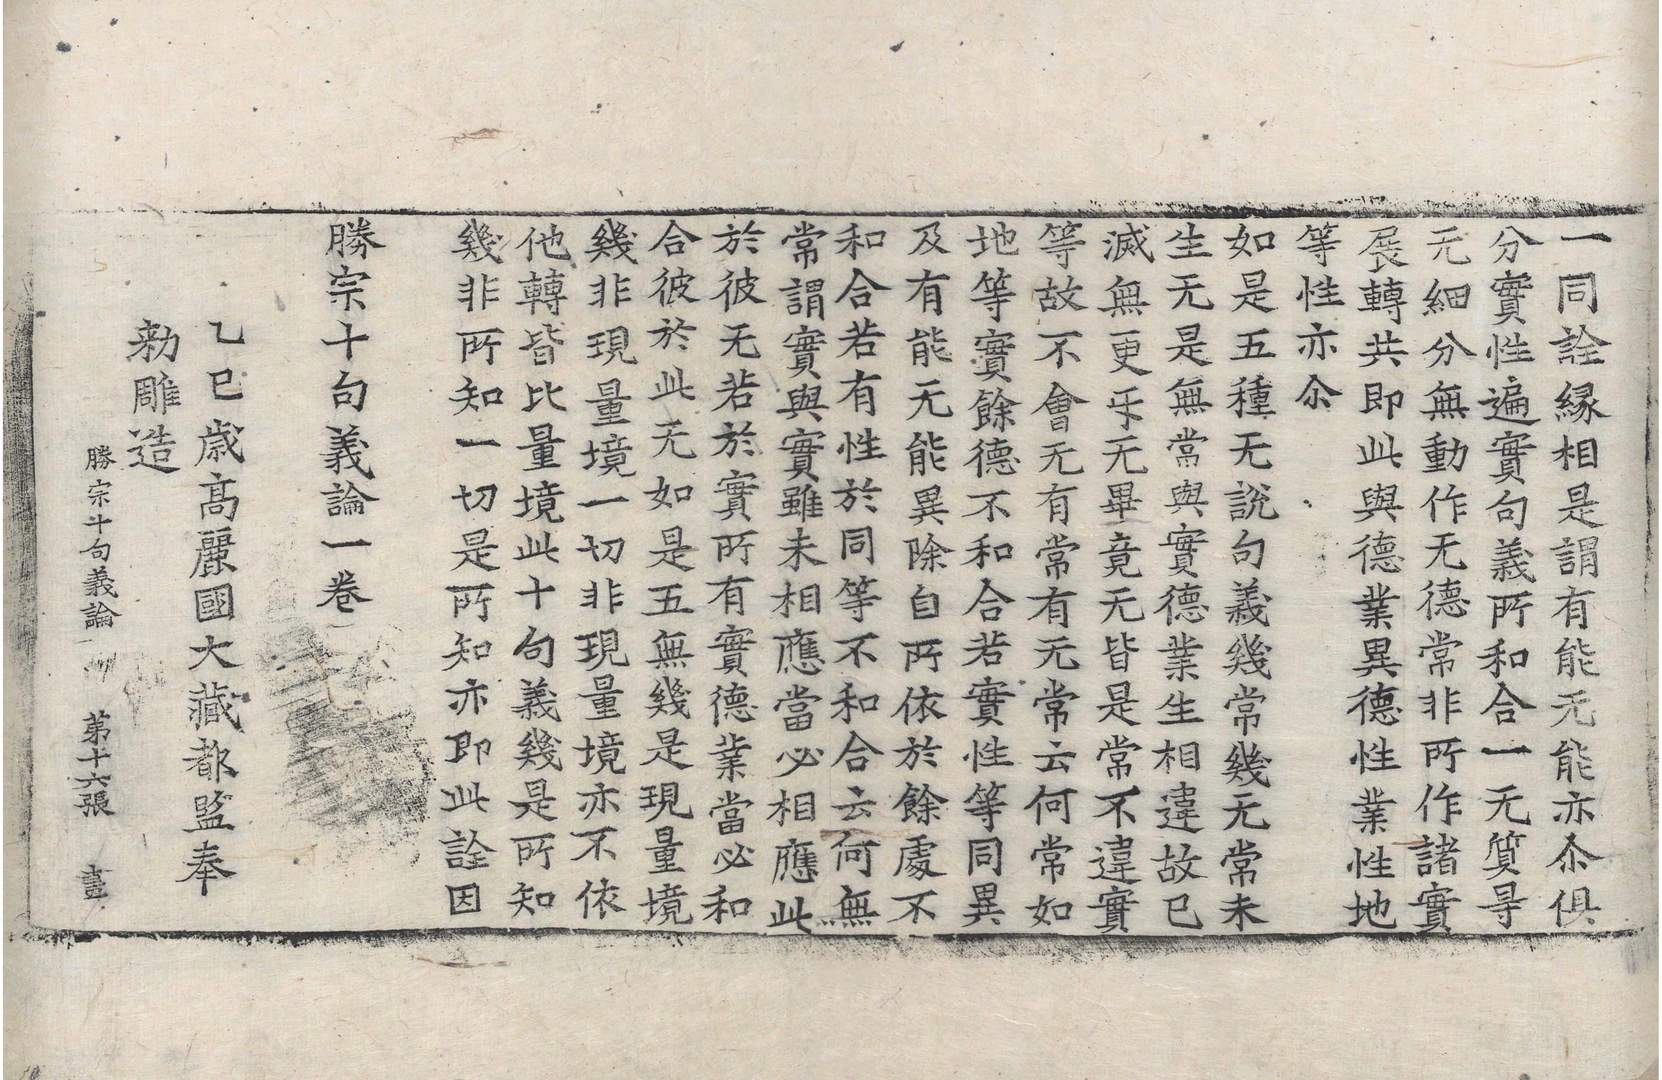 一同詮縁相是謂有能无能亦尒俱
分實性遍實句義所和合一无質㝵
无細分無動作无德常非所作諸實
展轉共即此與德業異德性業性地
等性亦尒
如是五種无說句義幾常幾无常未
生无是無常與實德業生相違故已
滅無更乎无畢竟无皆是常不違實
等故不會无有常有无常云何常如
地等實餘德不和合若實性等同異
及有能无能異除自所依於餘處不
和合若有性於同等不和合云何無
常謂實與實雖未相應當必相應此
於彼无若於實所有實德業當必和
合彼於此无如是五無幾是現量境
幾非現量境一切非現量境亦不依
他轉皆比量境此十句義幾是所知
幾非所知一切是所知亦即此詮因
勝宗十句義論一卷
乙巳歳高麗國大藏都監奉
勅雕造
勝宗十句義論 第十六張 畫